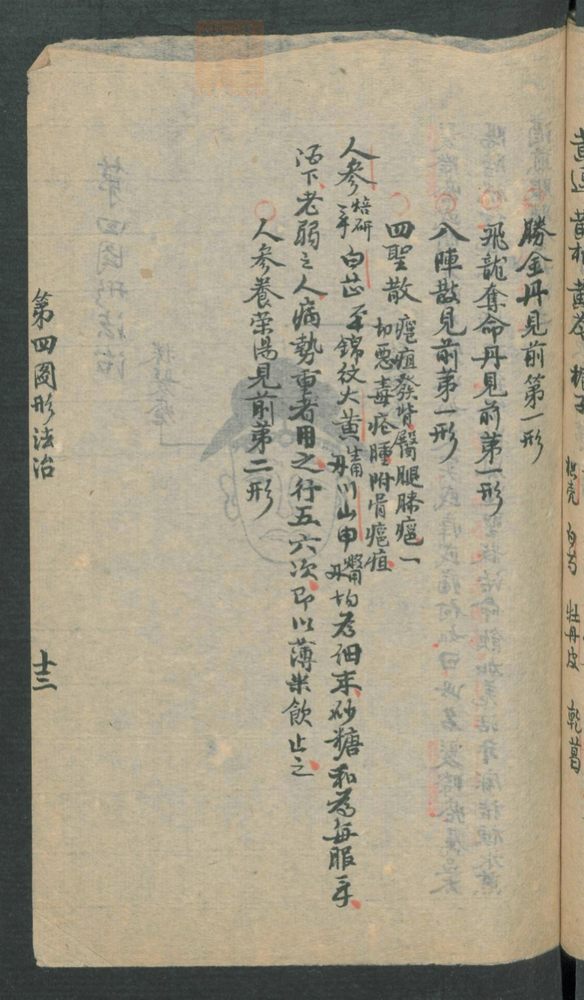 勝金丹見前第一形
飛龍奪命丹見前第一形
八陣散見前第一形
四聖散
瘟疽發背臀腿膝瘟一
切惡毒疮腫附骨瘟疽
人參焙研 白芷 錦紋大黃 川山甲 均為細末砂糖和為每服
洒下老弱之人病勢重者用之行五六次即以薄米飲止之
人參養荣湯見前第二形
第四圖形法治
十三
黃連 黃柏 黃芩
枳壳 白芍 牡丹皮 乾葛